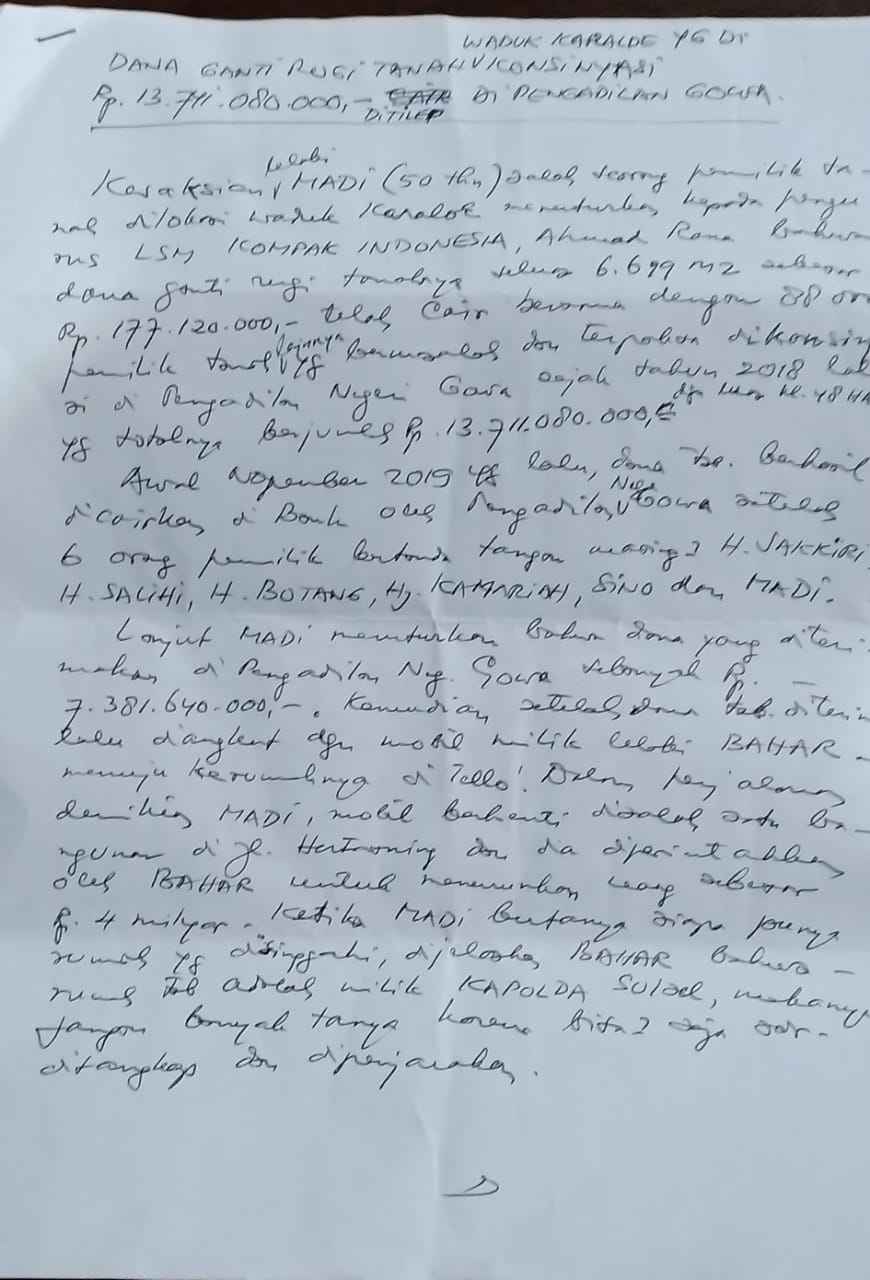 WADUK KARALOE YG DI
DANA GANTI RUGI TANAH V KONSINYASI
Rp. 13.711.080.000,- CAIR DI PENGADILAN GOWA.
DITILEP
lelaki
Kesaksian V MADI (50 thn) salah seorang pemilik ta-
nah dilokasi waduk Karaloe menuturkan kepada pengu
rus LSM KOMPAK INDONESIA, Ahmad Rana bahwa
dana ganti rugi tanahnya seluas 6.699 M2 sebesar
Rp. 177.120.000,- telah cair bersama dengan 88 or
pemilik tanah V yg bermasalah dan terpaksa dikonsin
lainnya
si di Pengadilan Negeri Gowa sejak tahun 2018 lal
yg totalnya berjumlah Rp. 13.711.080.000,- dgn luas 48 HA
Awal Nopember 2019 yg lalu, dana tsb. berhasil
dicairkan di Bank oleh Pengadilan V Gowa setelah
Neg.
6 orang pemilik bertanda tangan masing2 H. JAKKIRI
H. SALIHI, H. BOTANG, Hj. KAMARIAH, SINO dan MADI.
Lanjut MADI menuturkan bahwa dana yang diteri
makan di Pengadilan Neg. Gowa sebanyak Rp. -
7.381.640.000,-. Kemudian setelah dana tsb. diterim
lalu diangkut dgn mobil milik lelaki BAHAR -
menuju kerumahnya di Tello! Dalam perjalanan
demikian MADI, mobil berhenti disalah satu ba-
ngunan di Jl. Hertasning dan dia diperintahkan
oleh BAHAR untuk menurunkan uang sebesar
Rp. 4 milyar. Ketika MADI bertanya siapa punya
rumah yg disinggahi, dijelaskan BAHAR bahwa -
rumah tsb adalah milik KAPOLDA SULSEL, makanya
jangan banyak tanya karena bisa2 saja sdr-
ditangkap dan dipenjarakan.